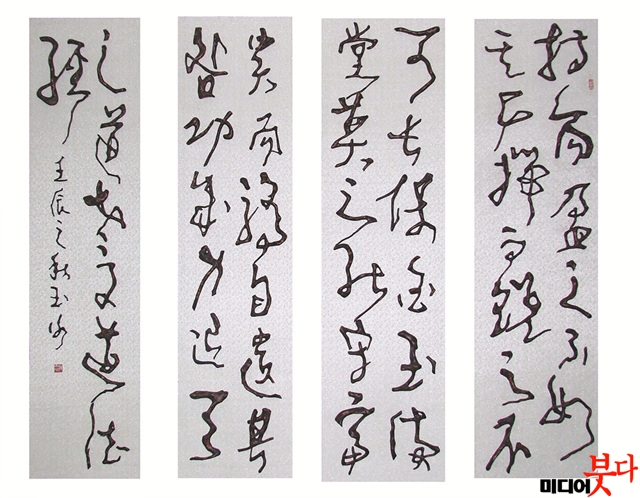 持而盈之不如
其已揣而銳之不
可長保金玉滿
堂莫之能守富
貴而驕自遺其
咎功成身退天
之道老子文道德
經
壬辰之秋玉
미디어붓다